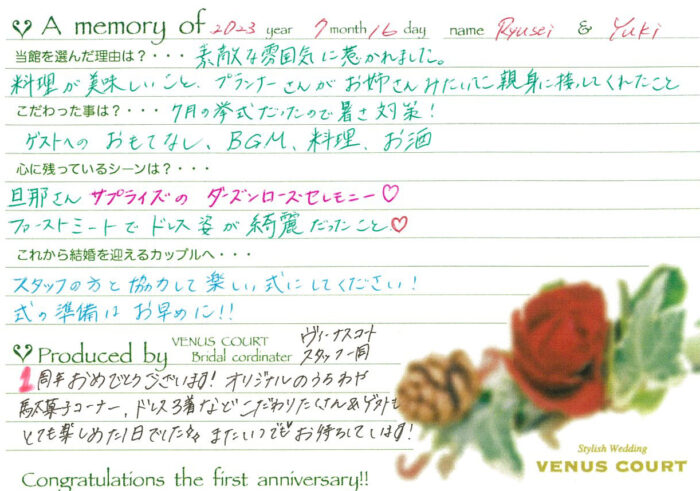 A memory of 2023 year 7 month 16 day name Ryusei & Yuki
当館を選んだ理由は？・・・素敵な雰囲気に惹かれました。
料理が美味しいこと、プランナーさんがお姉さんみたいにご親身に接してくれたこと
こだわった事は？・・・7月の挙式だったので暑さ対策！
ゲストへの おもてなし、BGM、料理、お酒
心に残っているシーンは？・・・
旦那さん サプライズの ダーズンローズセレモニー♡
ファーストミートで ドレス姿が 綺麗だったこと♡
これから結婚を迎えるカップルへ・・・
スタッフの方と協力して楽しい式にしてください！
式の準備は お早めに!!
Produced by VENUS COURT Bridal cordinater ヴィーナスコート スタッフ一同
1周年おめでとうございます! オリジナルのうちわや
駄菓子コーナー、ドレス3着などこだわりたくさん&ゲストも
とても楽しめた1日でした またいつでもお待ちしています!
Congratulations the first anniversary!!
Stylish Wedding
VENUS COURT